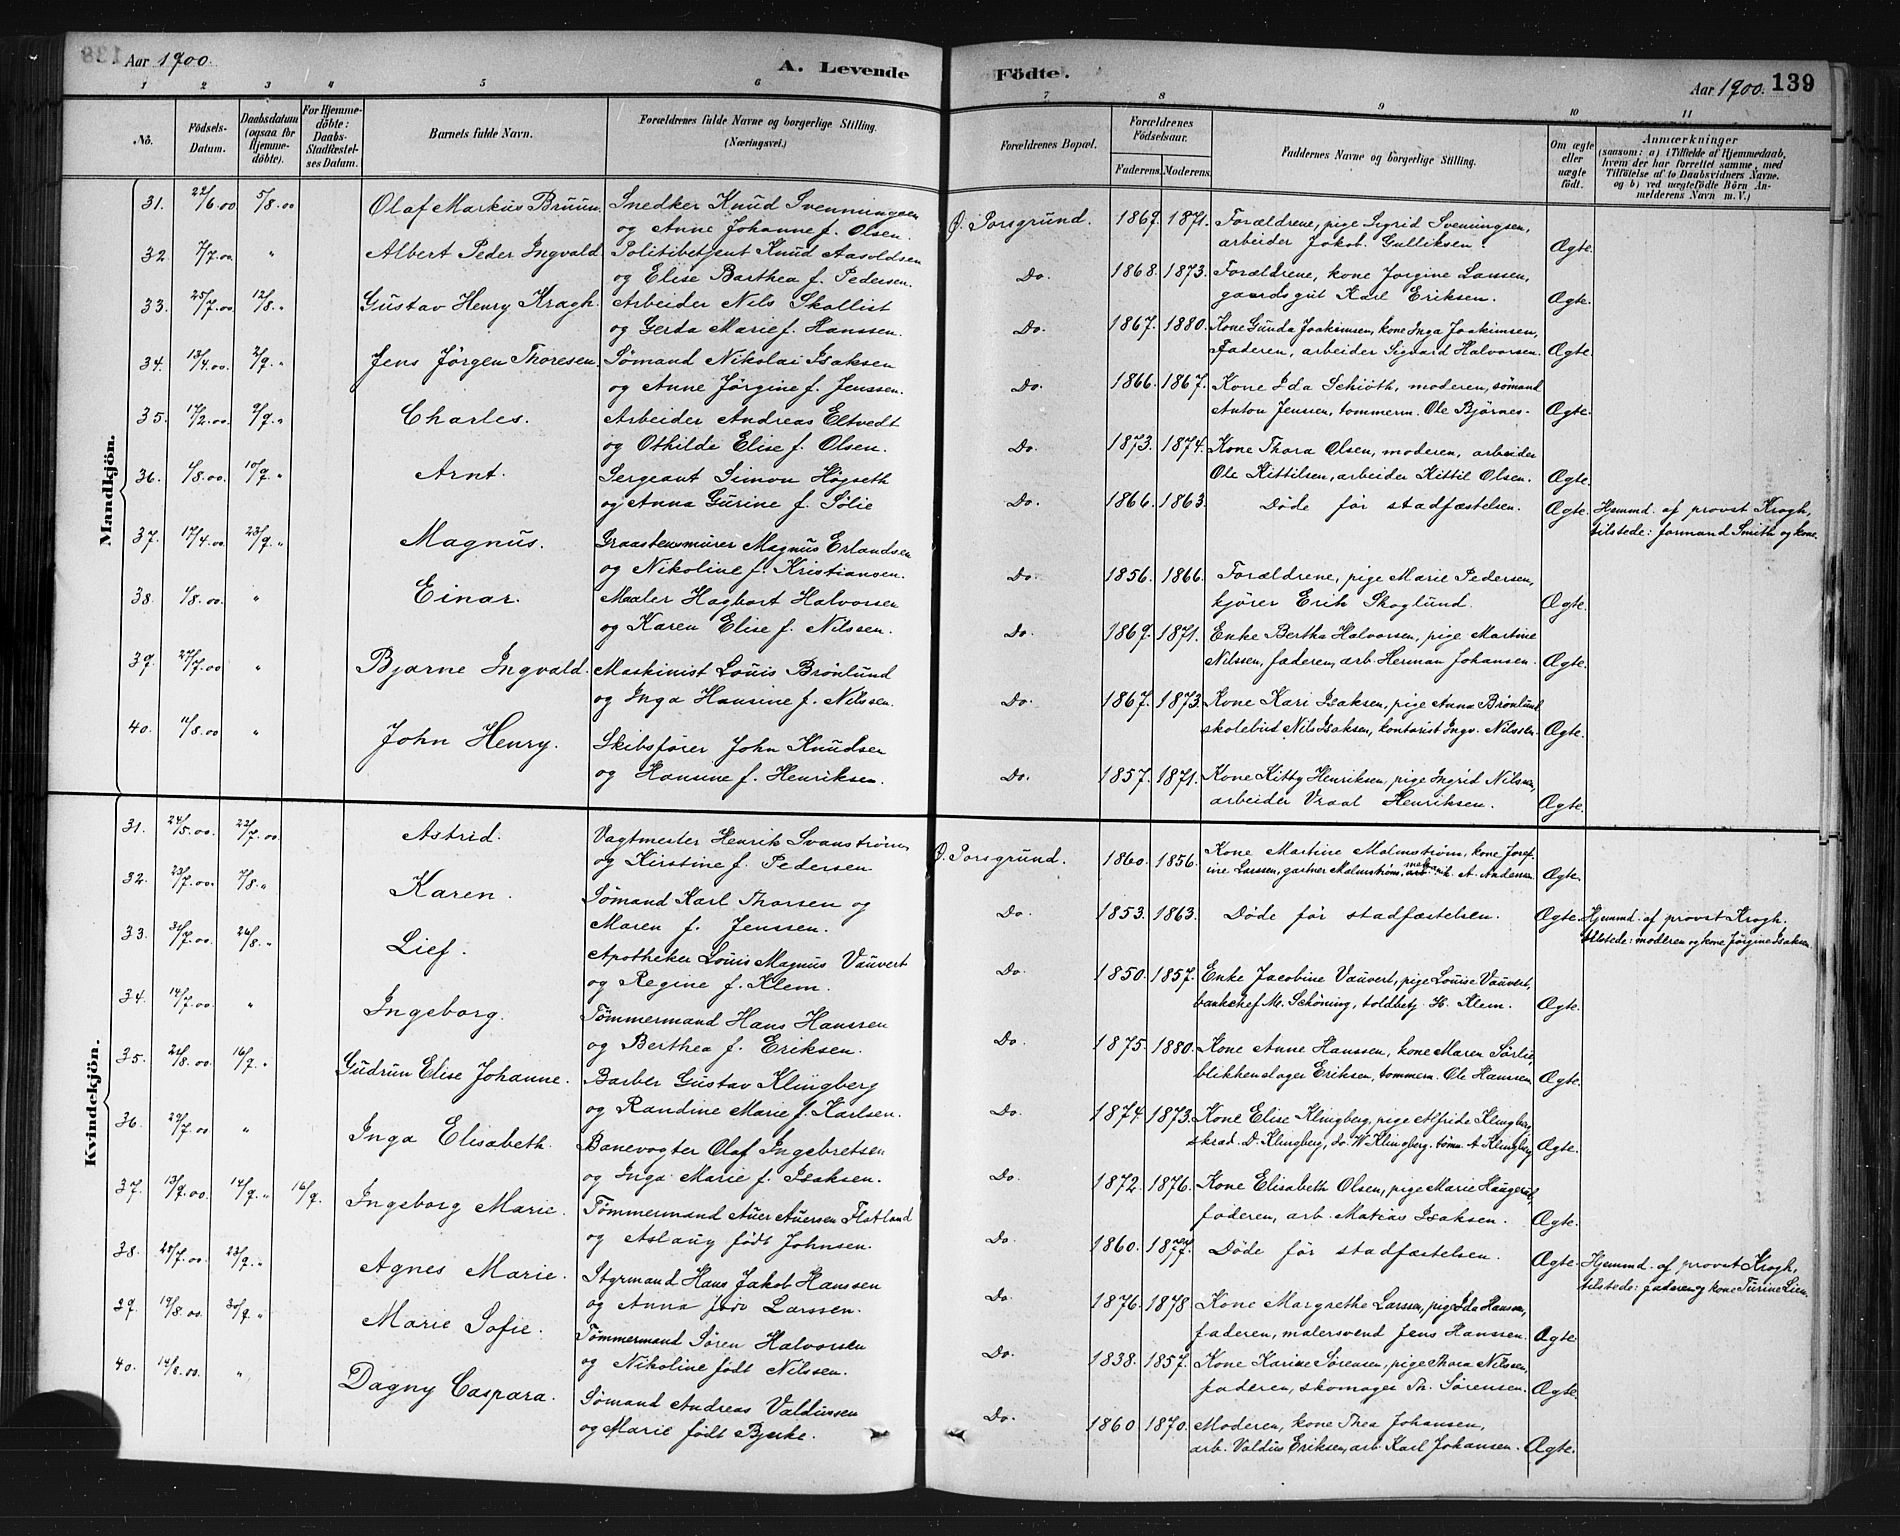 Aar 1900.
A. Levende
Födte.
Aar 1900. 139
1 2 3 4 5 6 7 8 9 10 11
No.
Födsels-Datum.
Daabsdatum (ogsaa for Hjemme-döbte).
For Hjemme-döbte: Daabs-Stadfæstel-ses Datum.
Barnets fulde Navn.
Forældrenes fulde Navne og borgerlige Stilling. (Næringsvei.)
Forældrenes Bopæl.
Forældrenes Födselsaar.
Faderens. Moderens.
Faddernes Navne og borgerlige Stilling.
Om ægte eller uægte födt.
Anmærkninger
(saasom: a) i Tilfælde af Hjemmedaab,
hvem der har forrettet samme, med
Tilföielse af to Daabsvidners Navne.
og b) ved uægtefödte Börn An-
melderens Navn m. V.)
Mandkjön.
31. 22/6.00 5/8.00 Olaf Markus Bruun. Snedker Knud Svenningsen
og Anne Johanne f. Olsen.
Ø. Porsgrund. 1869. 1871. Forældrene, pige Sigrid Svenningsen,
arbeider Jakob Gulliksen. Ægte.
32. 7/7.00 " Albert Peder Ingvald. Politibetjent Knud Aasoldsen
og Elise Barthea f. Pedersen.
Do. 1868. 1873. Forældrene, kone Jorgine Larssen,
gaardsgut Karl Eriksen. Ægte.
33. 25/7.00 12/8. " Gustav Henry Kragh. Arbeider Nils Skollist
og Gerda Marie f. Hanssen.
Do. 1867. 1880. Kone Gunda Joakimsen, kone Inga Joakimsen,
Faderen, arbeider Sigvard Halvorsen. Ægte.
34. 13/4.00 2/9. " Jens Jörgen Thoresen. Sømand Nikolai Isaksen
og Anne Jørgine f. Jenssen.
Do. 1866. 1867. Kone Ida Schiöth, moderen, sømand
Anton Jenssen, tømmerm. Ole Bjørnes- Ægte.
35. 17/2.00 9/9. " Charles. Arbeider Andreas Eltvedt
og Othilde Elise f. Olsen.
Do. 1873. 1874. Kone Thora Olsen, moderen, arbeider
Ole Kittilsen, arbeider Kittil Olsen. Ægte.
36. 1/8.00 10/9. " Arnt. Sergeant Simon Høgseth
og Anna Gurine f. Sølie
Do. 1866. 1863. Døde før stadfæstelsen. Ægte. Hjemmd. af provst Krogh,
tilstede: formand Smith og kone.
37. 17/4.00 23/9. " Magnus. Graastensmurer Magnus Erlandsen
og Nikoline f. Kristiansen.
Do. 1856. 1866. Forældrene, pige Marie Pedersen,
kjører Erik Skoglund. Ægte.
38. 1/8.00 " Einar. Maaler Hagbart Halvorsen
og Karen Elise f. Nilssen.
Do. 1869. 1871. Enke Bertha Halvorsen, pige Martine
Nilssen, faderen, arb. Herman Johansen. Ægte.
39. 27/7.00 " Bjarne Ingvald. Maskinist Louis Brønlund
og Inga Hansine f. Nilssen.
Do. 1867. 1873. Kone Kari Isaksen, pige Anna Brønlund
skolebud Nils Isaksen, kontorist Ingv. Nilssen. Ægte.
40. 11/8.00 " John Henry. Skibsfører John Knudsen
og Hansine f. Henriksen.
Do. 1857. 1871. Kone Kitty Henriksen, pige Ingrid Nilssen,
arbeider Vraal Henriksen. Ægte.
Kvindekjön.
31. 24/5.00 22/7.00 Astrid. Vagtmester Henrik Svanstrøm
og Kirstine f. Pedersen
Ø. Porsgrund. 1860. 1856. Kone Martine Malmstrøm, kone Josef-
ine Larssen, gartner Malmstrøm, A. Andersen Ægte.
32. 23/7.00 7/8. " Karen. Sømand Karl Thorsen og
Maren f. Jenssen.
Do. 1853. 1863. Døde før stadfæstelsen. Ægte. Hjemmd. af provst Krogh.
tilstede: moderen og kone Jørgine Isaksen.
33. 31/7.00 26/8. " Lief. Apotheker Louis Magnus Vauvert
og Regine f. Klem.
Do. 1850. 1857. Enke Jacobine Vauvert, pige Louise Vauvert,
bankchef M. Schøning, toldbetj. H. Klem. Ægte.
34. 14/7.00 " Ingeborg. Tømmermand Hans Hanssen
og Berthea f. Eriksen.
Do. 1875. 1880. Kone Anne Hanssen, kone Maren Sørlie,
blikkenslager Eriksen, tømmerm. Ole Hanssen. Ægte.
35. 21/8.00 16/9. " Gudrun Elise Johanne. Barber Gustav Klingberg
og Randine Marie f. Karlsen.
Do. 1874. 1873. Kone Elise Klingberg, pige Alfride Klingberg
skræd. D. Klingberg, do. W. Klingberg. tømm. A. Klingberg Ægte.
36. 29/7.00 " Inga Elisabeth. Banevogter Olaf Ingebretsen
og Inga Marie f. Isaksen.
Do. 1872. 1876. Kone Elisabeth Olsen, pige Marie Haugerud,
faderen, arb. Matias Isaksen. Ægte.
37. 13/9.00 14/9. " 16/9. Ingeborg Marie. Tømmermand Auer Auersen Flatland
og Aslaug født Johnsen.
Do. 1860. 1877. Døde før stadfæstelsen. Ægte. Hjemmd. af provst Krogh,
tilstede: faderen og kone Turine Lien.
38. 20/7.00 23/9. " Agnes Marie. Styrmand Hans Jakob Hanssen
og Anna født Larssen.
Do. 1876. 1878. Kone Margrethe Larssen, pige Ida Hanssen,
faderen, malersvend Jens Hanssen. Ægte
39. 19/8.00 30/9. " Marie Sofie. Tømmermand Søren Halvorsen
og Nikoline født Nilssen.
Do. 1838. 1857. Kone Karine Sørensen, pige Thora Nilssen,
faderen, skomager Th. Sørensen. Ægte.
40. 14/8.00 " Dagny Caspara. Sømand Andreas Valdiussen
og Marie født Bjerke.
Do. 1860 1870. Moderen, kone Thea Johansen,
arb. Valdius Eriksen, arb. Karl Johansen. Ægte.